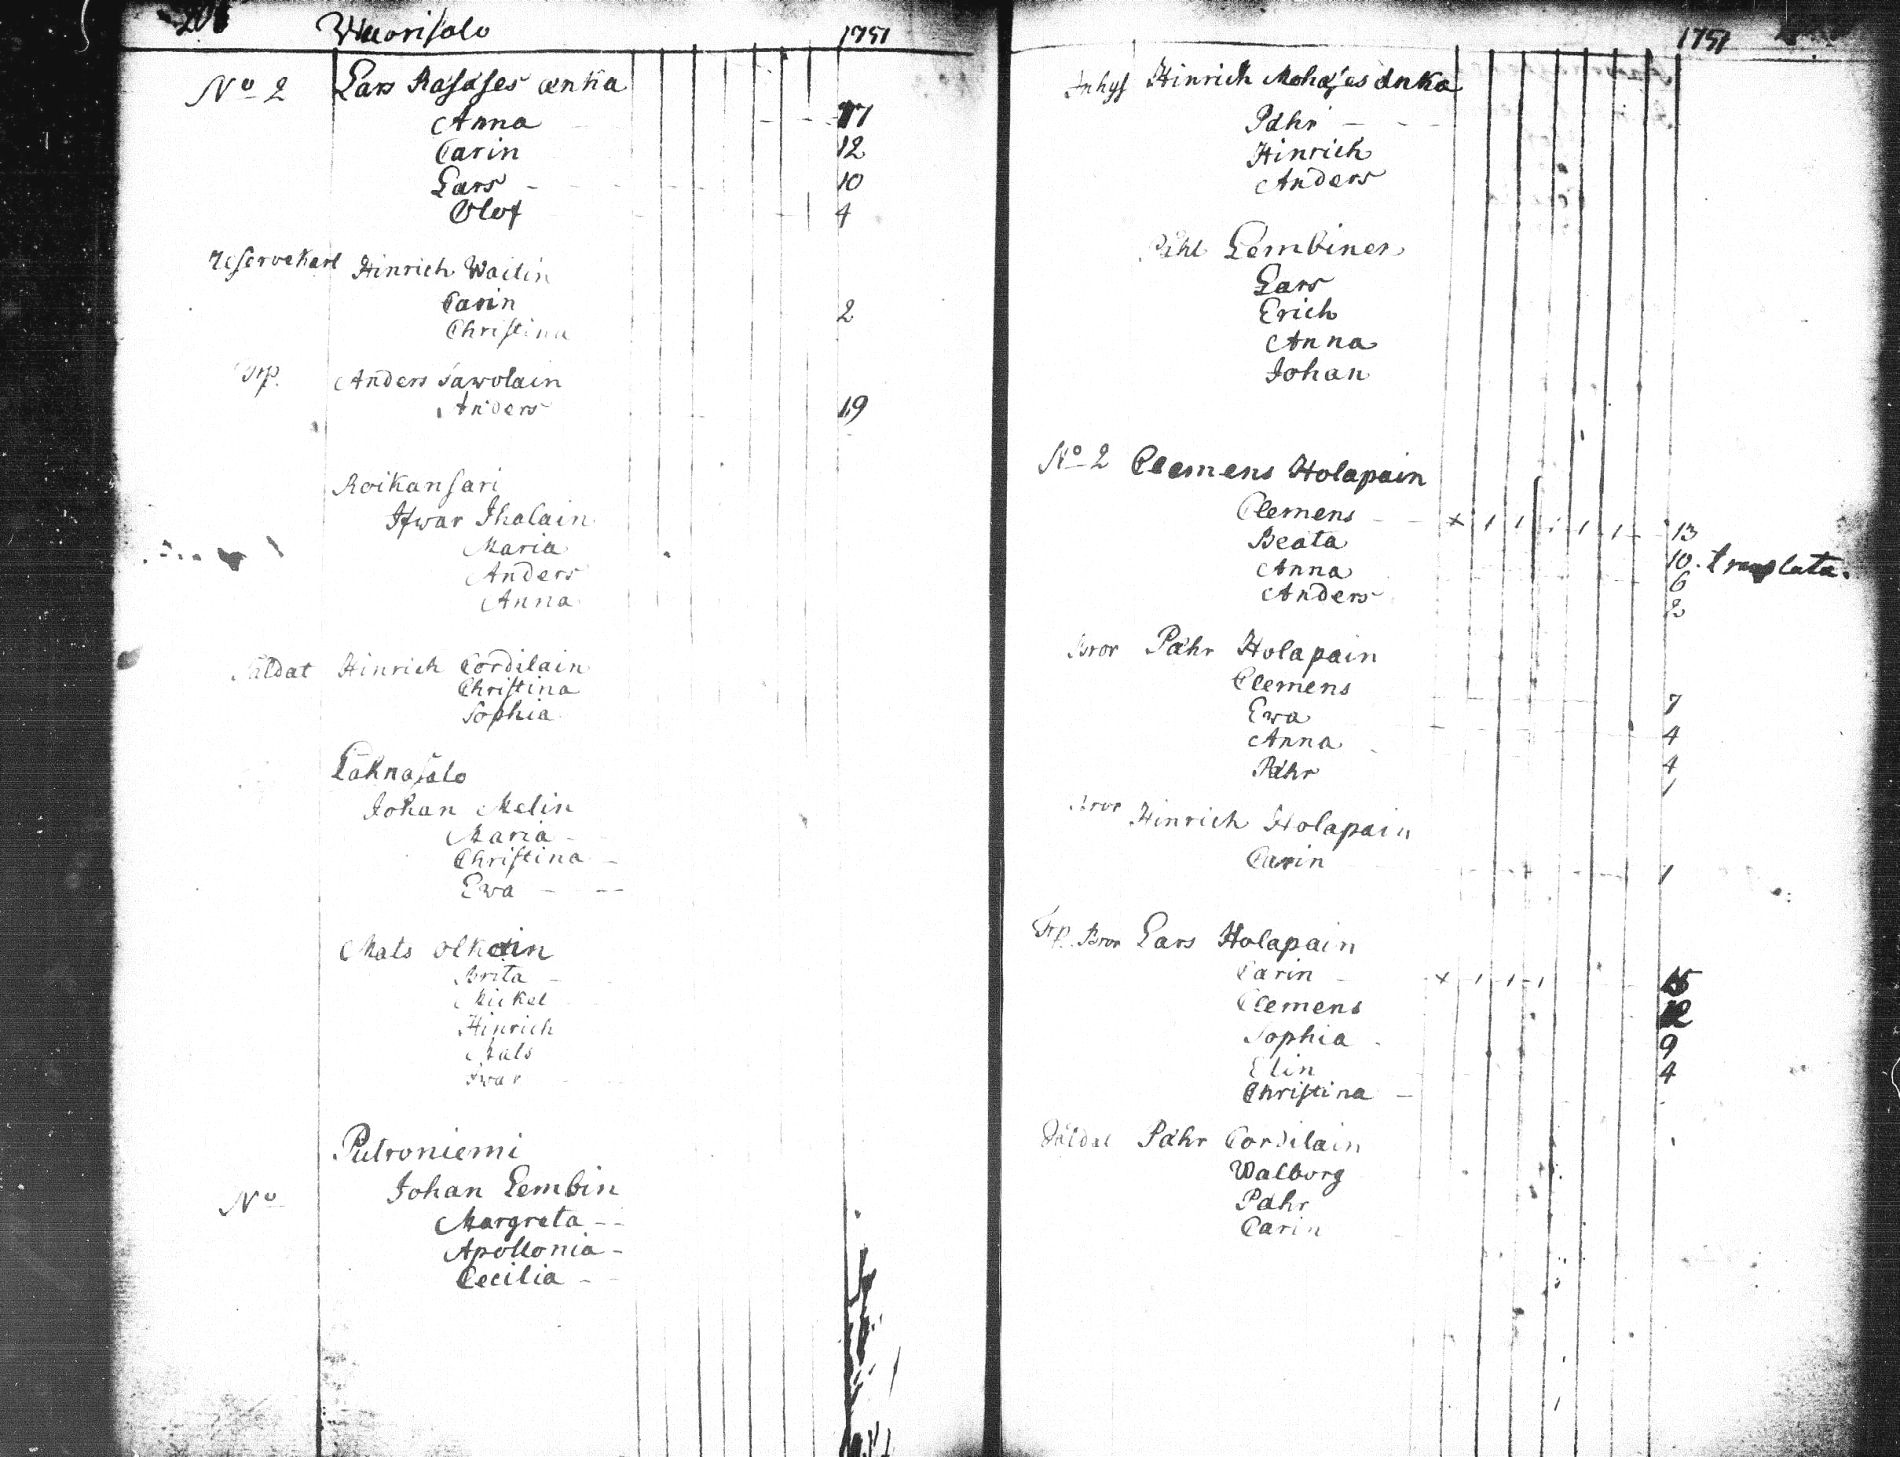 Wuorisalo 1751
No 2 Lars Räsäses ænka
Anna 17
Carin 12
Lars 10
Olof 4
Reservekarl Hinrich Wailin
Carin 2
Christina
Trp. Anders Sawolain
Anders 19
Roikansari
Ifwar Ihalain
Maria
Anders
Anna
Saldat Hinrich Cordilain
Christina
Sophia
Lahnasalo
Johan Melin
Maria
Christina
Ewa
Mats Olkoin
Brita
Mickel
Hinrich
Mats
Iwar
Putroniemi
No Johan Lembin
Margreta
Apollonia
Cecilia
1751
Inhys Hinrich Mohäjes änka
Påhr
Hinrich
Anders
Påhl Lembinen
Lars
Erich
Anna
Johan
No 2 Clemens Holapain
Clemens x 13
Beata 10. translata.
Anna 6
Anders 2
Bror Påhr Holapain
Clemens 7
Ewa 4
Anna 4
Påhr 1
Bror Hinrich Holapain
Carin 1
Trp. Bror Lars Holapain
Carin x 15
Clemens 12
Sophia 9
Elin 4
Christina
Saldat Påhr Cordilain
Walborg
Påhr
Carin